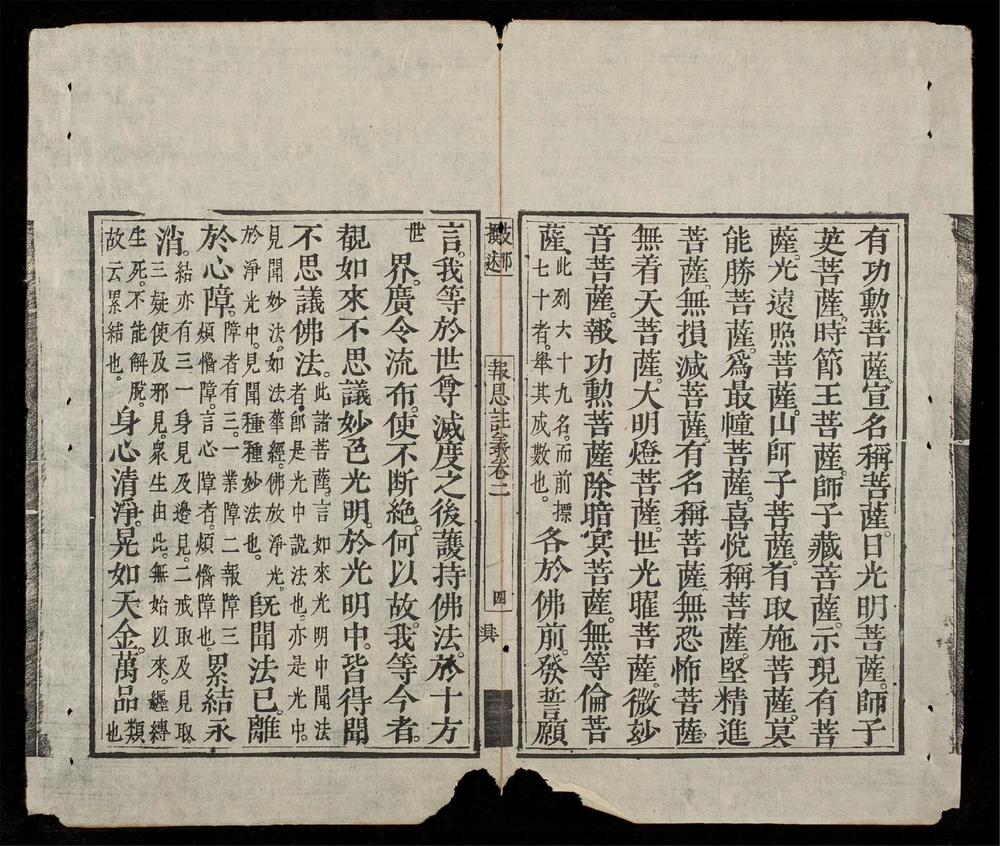 有功勲菩薩。宣名稱菩薩。日光明菩薩。師子
英菩薩。時節王菩薩。師子藏菩薩。示現有菩
薩。光遠照菩薩。山師子菩薩。有取施菩薩。莫
能勝菩薩。為最幢菩薩。喜悅稱菩薩。堅精進
菩薩。無損減菩薩。有名稱菩薩。無恐怖菩薩。
無着天菩薩。大明燈菩薩。世光曜菩薩。微妙
音菩薩。報功勲菩薩。除暗冥菩薩。無等倫菩
薩。此列六十九名。而前標
七十者。舉其成數也。各於佛前。發誓願
報恩註義卷二
四
言。我等於世尊滅度之後。護持佛法。於十方世
界。廣令流布。使不断絕。何以故。我等今者。
覩如來不思議妙色光明。於光明中。皆得聞
不思議佛法。此諸菩薩。言如來光明中聞法
者。即是光中說法也。亦是光中
見聞妙法。如法華經。佛放淨光。
於淨光中。見聞種種妙法也。旣聞法已。離
於心障。障者有三。一業障二報障三
煩惱障。言心障者。煩惱障也。累結永
消。結亦有三。一身見及邊見。二戒取及見取。
三疑使及邪見。衆生由此。無始以來。纒縛
生死。不能解脫。
故云累結也。身心清淨。晃如天金。萬品類
也